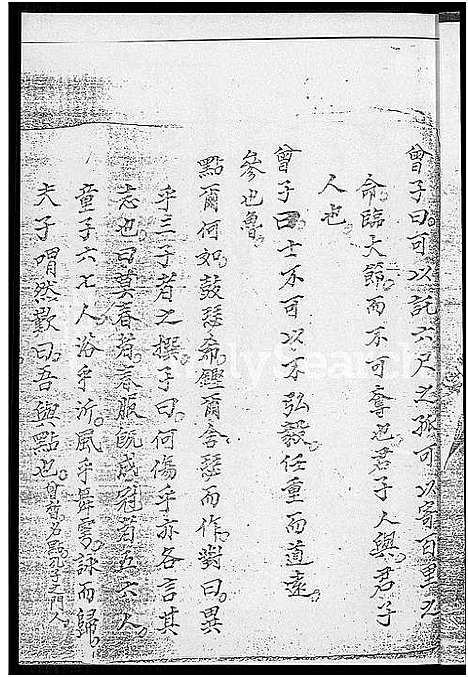 曾子曰可以託六尺之孤可以寄百里之
命臨大節而不可奪也君子人與君子
人也
曾子曰士不可以不弘毅任重而道遠
參也魯
點爾何如鼓瑟希鏗爾舍瑟而作對曰異
乎三子者之撰子曰何傷乎亦各言其
志也曰莫春者春服既成冠者五六人
童子六七人浴乎沂風乎舞雩詠而歸
夫子喟然歎曰吾與點也曾晳名點孔子之門人